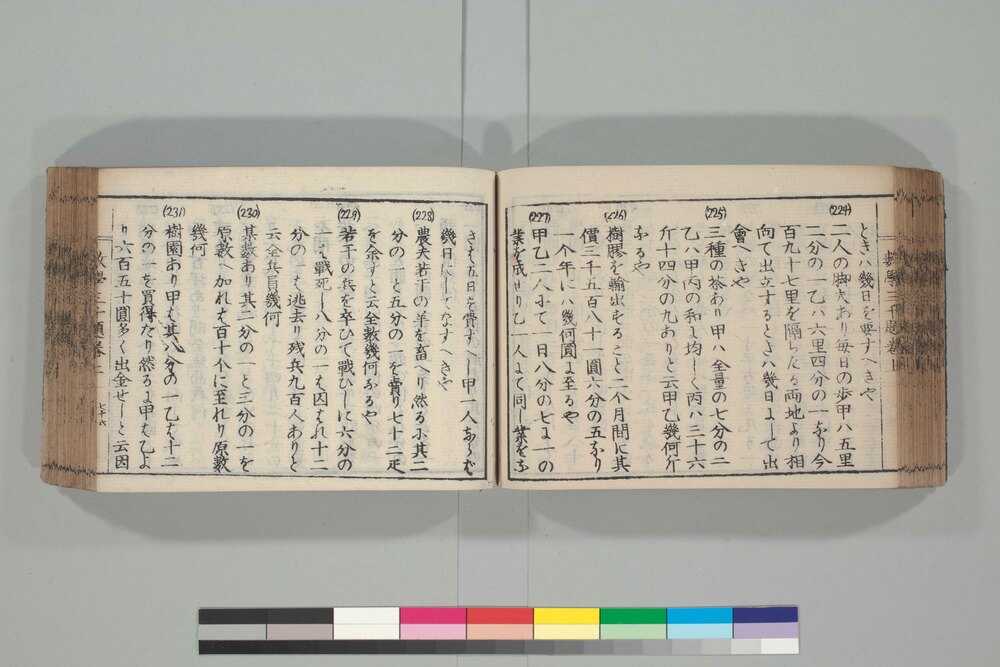 とき八幾日を要すへきや
(224)
二人の脚夫あり毎日の歩甲八五里
二分の一乙八六里四分の一なり今
百九十七里を隔したる両地より相
向て出立するとき八幾日にして出
會へきや
(225)
三種の茶あり甲八全量の七分の二
乙八甲丙の和と均しく丙八三十六
斤十四分の九ありと云甲乙幾何斤
なるや
(226)
樹膠を輸出せること二个月間に其
價三千五百八十一圓六分の五なり
一个年に八幾何圓に至るや
(227)
甲乙二人にて一日八分の七に一の
業を成せり乙一人にて同し業をな
さは五日を費すへし甲一人ならは
幾日にしてなすへきや
(228)
農夫若干の羊を畜へり然るに其二
分の一と五分の一を賣り七十二疋
を余すと云全数幾何なるや
(229)
若干の兵を卒ひて戰ひしに六分の
一は戰死し八分の一は囚はれ十二
分の一は逃去り残兵九百人ありと
云全兵員幾何
(230)
某数あり其二分の一と三分の一を
原数へ加れは百十个に至れり原數
幾何
(231)
樹園あり甲は其八分の一乙は十二
分の一を買得たり然るに甲は乙よ
り六百五十圓多く出金せしと云因
七十六